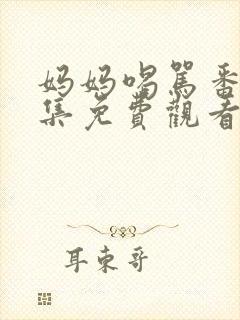 妈妈喝駡番
集免費觀看
耳東哥